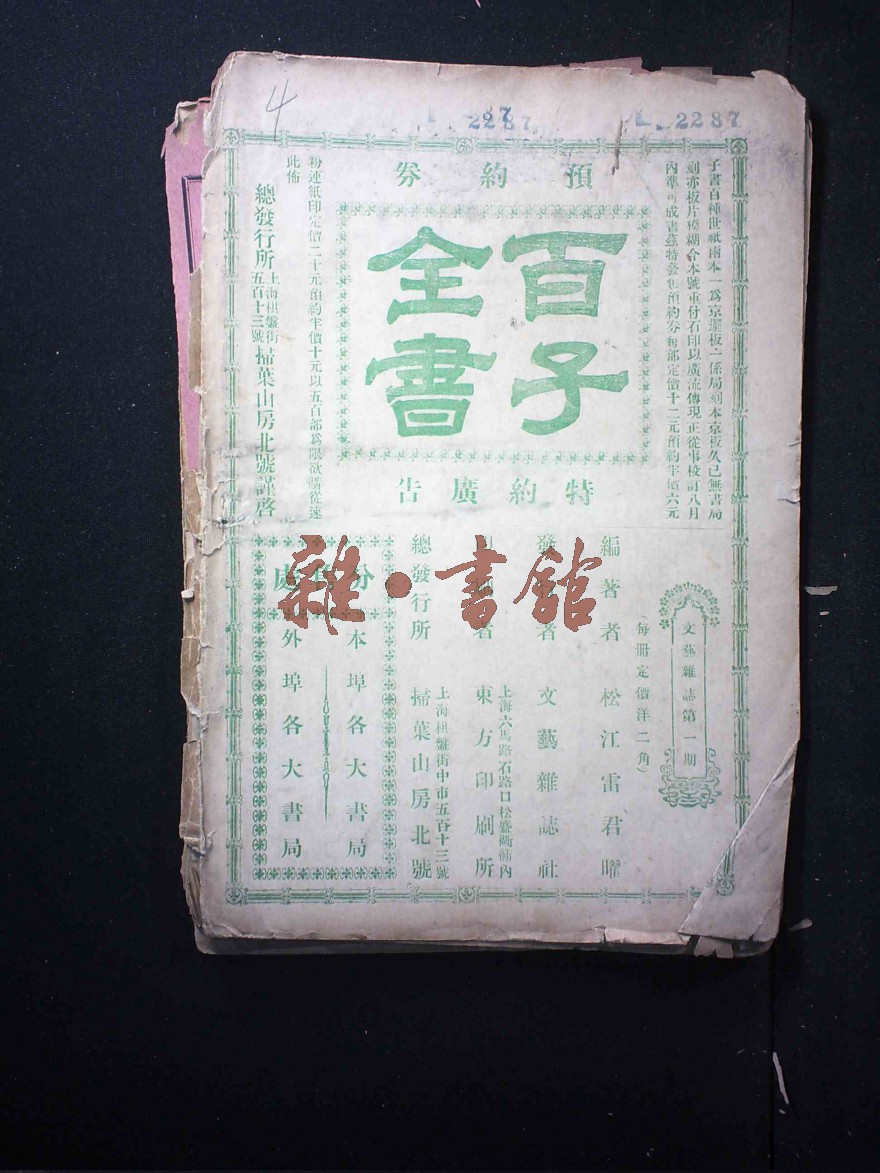 4
2287
2287
預約券
子書百種世祇兩本一爲京選板一係局刻本京板久已無書局
刻亦板片模糊今本號重付石印以廣流傳現正從事校訂八月
內準可成書茲特發售預約券每部定價十二元預約半價六元
百子
全書
粉連紙印定價二十元預約半價十元以五百部爲限欲購從速
此佈
總發行所 上海棋盤街五百十三號 掃葉山房北號謹啓
特約廣告
文藝雜誌第一期
(每册定價洋二角)
編著者 松江雷君曜
發 者 文藝雜誌社
上海六馬路石路口松盛衖內
者 東方印刷所
上海棋盤街中市五百十三號
總發行所 掃葉山房北號
分 處
本埠各大書局
外埠各大書局
雜·書館